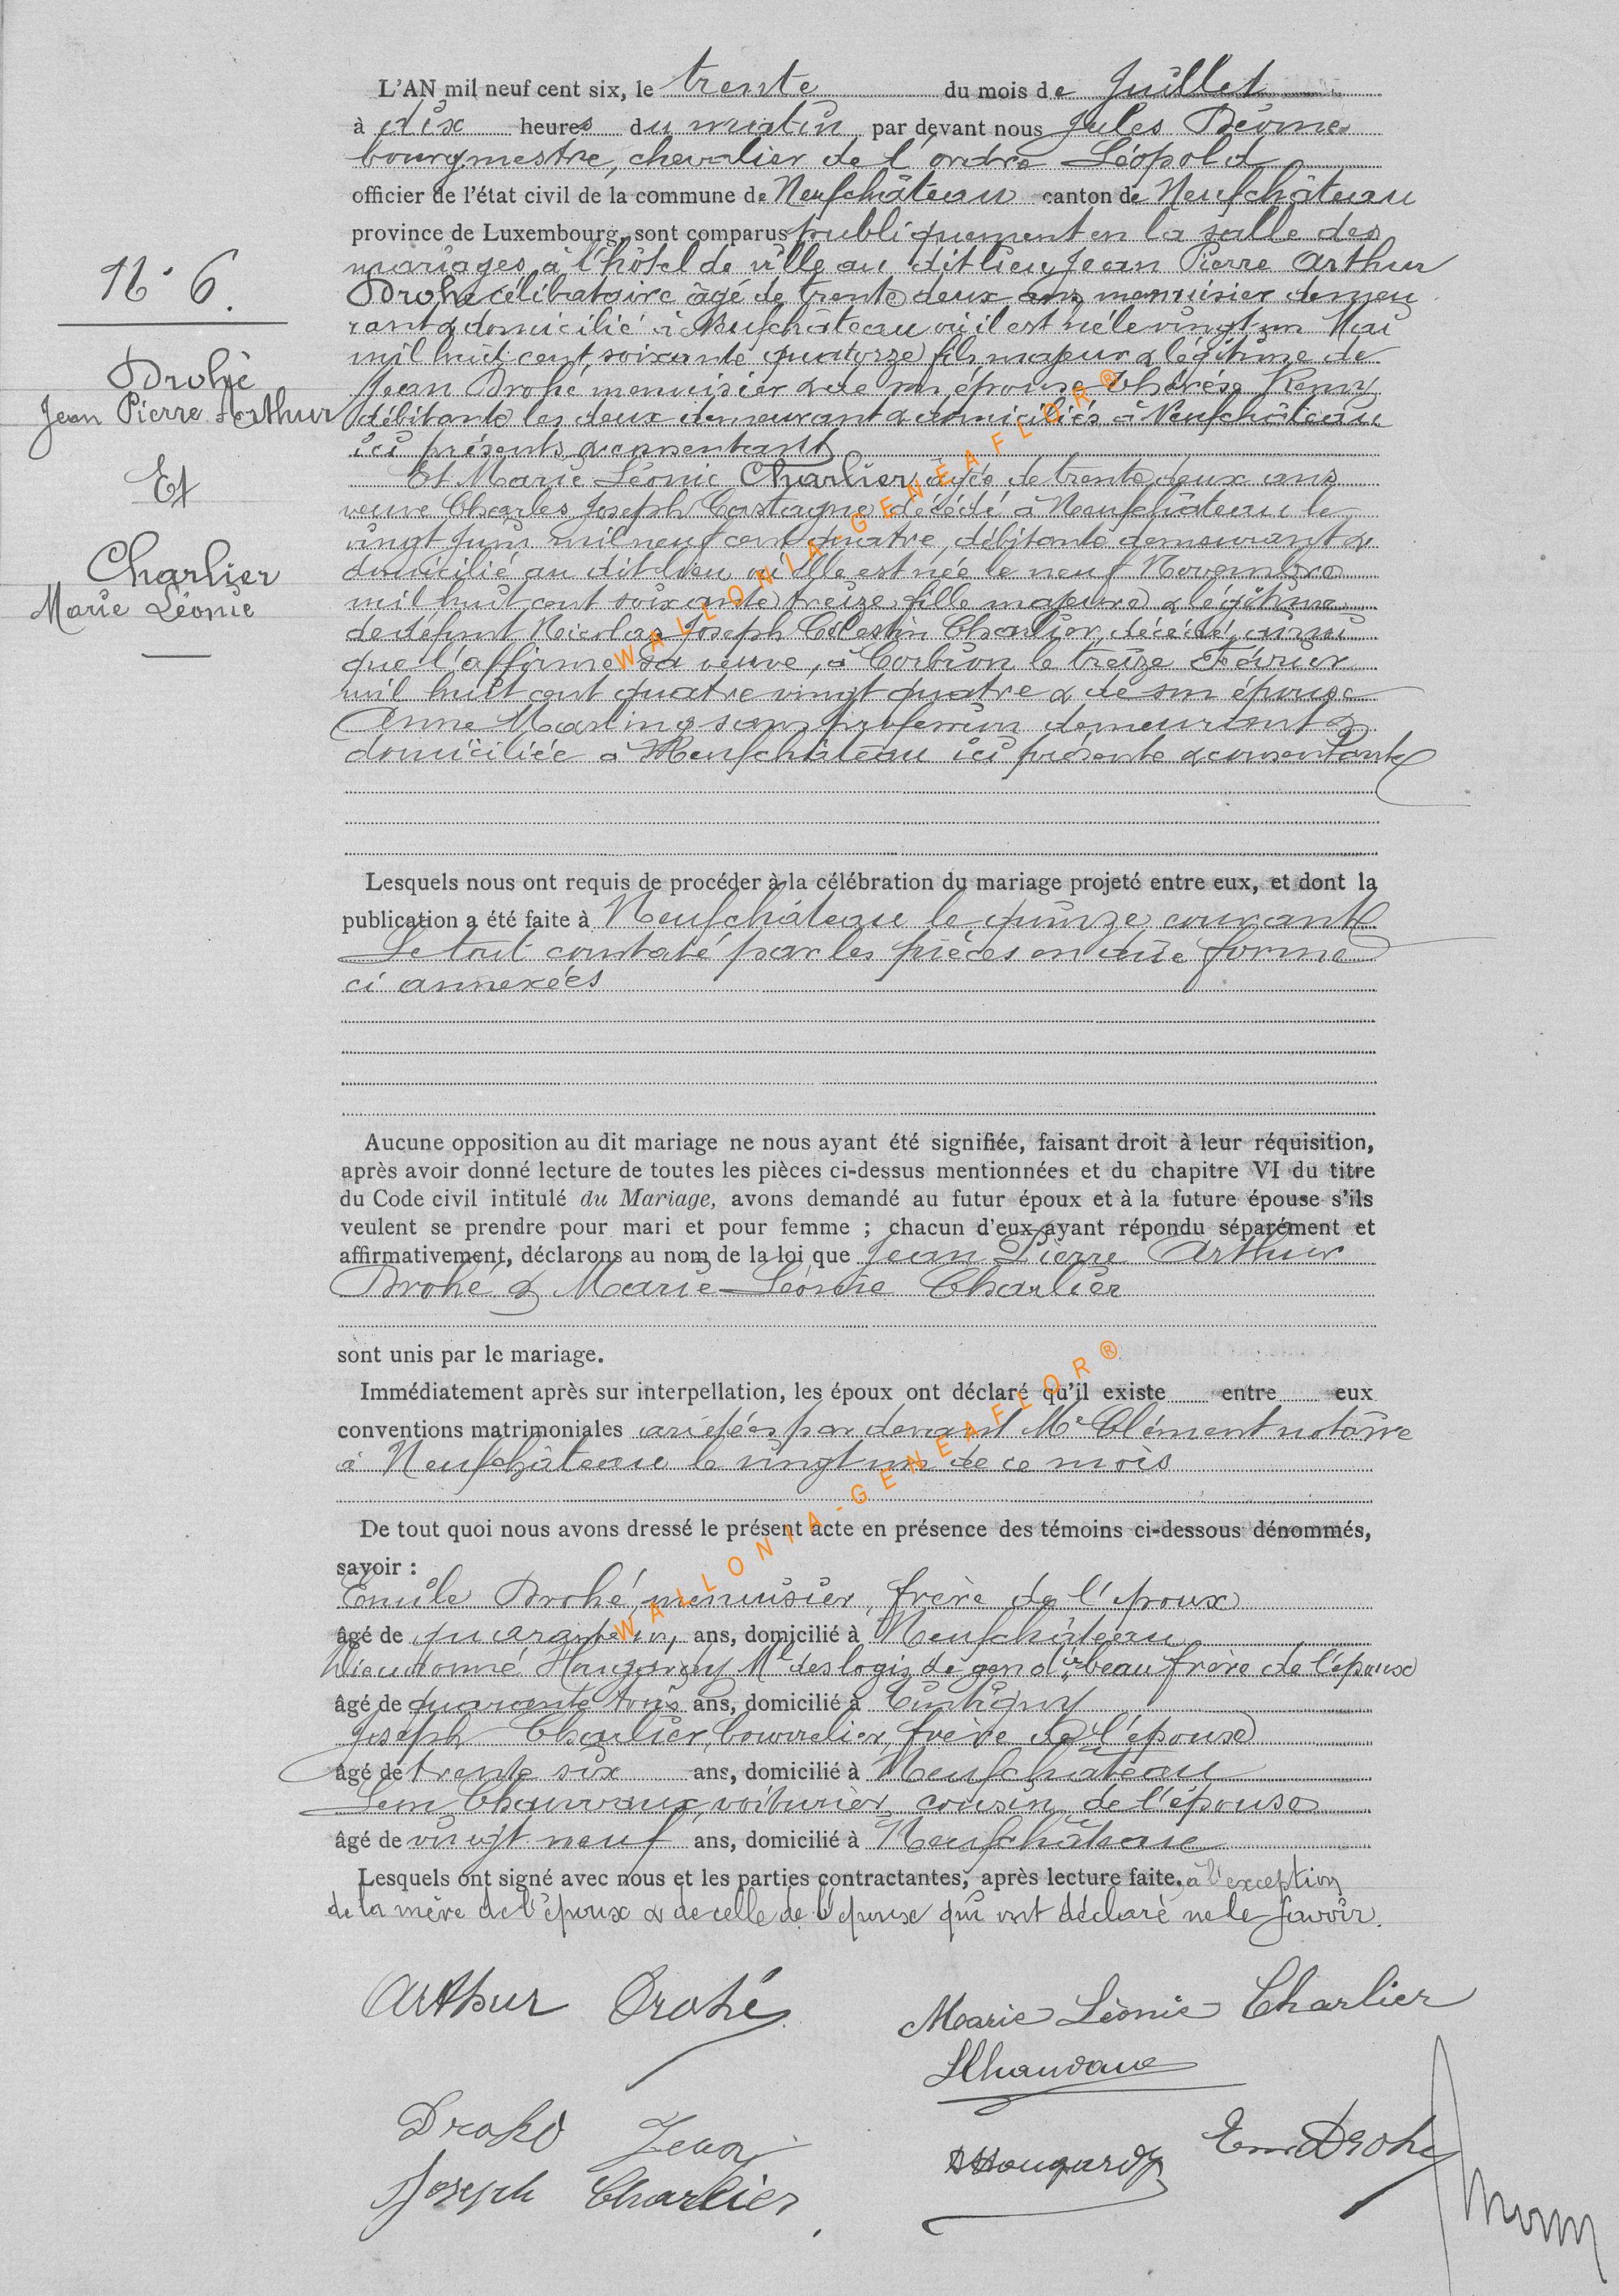 L'AN mil neuf cent six, le trente du mois de Juillet
à dix heures du matin par devant nous Jules
bourgmestre, chevalier de l'ordre Léopold
officier de l'état civil de la commune de Neufchâteau canton de Neufchâteau
province de Luxembourg, sont comparus publiquement en la salle des
mariages à l'hôtel de ville au dit lieu Jean Pierre Arthur
Drohé célibataire âgé de trente deux ans, menuisier demeu
rant & domicilié à Neufchâteau où il est né le vingt un Mai
mil huit cent soixante quatorze fils majeur & légitime de
Jean Drohé menuisier & de son épouse Thérèse Remy
débitante les deux demeurant & domiciliés à Neufchâteau
ici présents & consentants
N° 6.
Drohé
Jean Pierre Arthur
Et
Charlier
Marie Léonie
Et Marie Léonie Charlier, âgée de trente deux ans
veuve Charles Joseph Castagne décédé à Neufchâteau le
vingt juin mil neuf cent quatre, débitante demeurant &
domicilié au dit lieu où elle est née le neuf Novembre
mil huit cent soixante treize fille majeure & légitime
de défunt Nicolas Joseph Célestin Charlier, décédé, ainsi
que l'affirme sa veuve, à Corbion le treize Février
mil huit cent quatre vingt quatre & de son épouse
Anne Marling sans profession demeurant &
domiciliée à Neufchâteau ici présente & consentante
Lesquels nous ont requis de procéder à la célébration du mariage projeté entre eux, et dont la
publication a été faite à Neufchâteau le quinze courant
Le tout constaté par les pièces en due forme
ci annexées
Aucune opposition au dit mariage ne nous ayant été signifiée, faisant droit à leur réquisition,
après avoir donné lecture de toutes les pièces ci-dessus mentionnées et du chapitre VI du titre
du Code civil intitulé du Mariage, avons demandé au futur époux et à la future épouse s'ils
veulent se prendre pour mari et pour femme ; chacun d'eux ayant répondu séparément et
affirmativement, déclarons au nom de la loi que Jean Pierre Arthur
Drohé & Marie Léonie Charlier
sont unis par le mariage.
Immédiatement après sur interpellation, les époux ont déclaré qu'il existe entre eux
conventions matrimoniales arrêtées par devant Me Clément notaire
à Neufchâteau le vingt un de ce mois
De tout quoi nous avons dressé le présent acte en présence des témoins ci-dessous dénommés,
savoir :
Emile Drohé, menuisier, frère de l'époux
âgé de quarante un, ans, domicilié à Neufchâteau
Dieudonné Hougardy Ml des logis de gend ie beau frère de l'épouse
âgé de quarante trois ans, domicilié à Tintigny
Joseph Charlier, bourrelier, frère de l'épouse
âgé de trente six ans, domicilié à Neufchâteau
Chauvaux, voiturier, cousin de l'épouse
âgé de vingt neuf ans, domicilié à Neufchâteau
Lesquels ont signé avec nous et les parties contractantes, après lecture faite. à l'exception
de la mère de l'époux & de celle de l'épouse qui ont déclaré ne le savoir.
Arthur Drohé
Marie Léonie Charlier
Drohé Jean
Em Drohé
Joseph Charlier
WALLONIA-GENEAFLOR®
WALLONIA-GENEAFLOR®